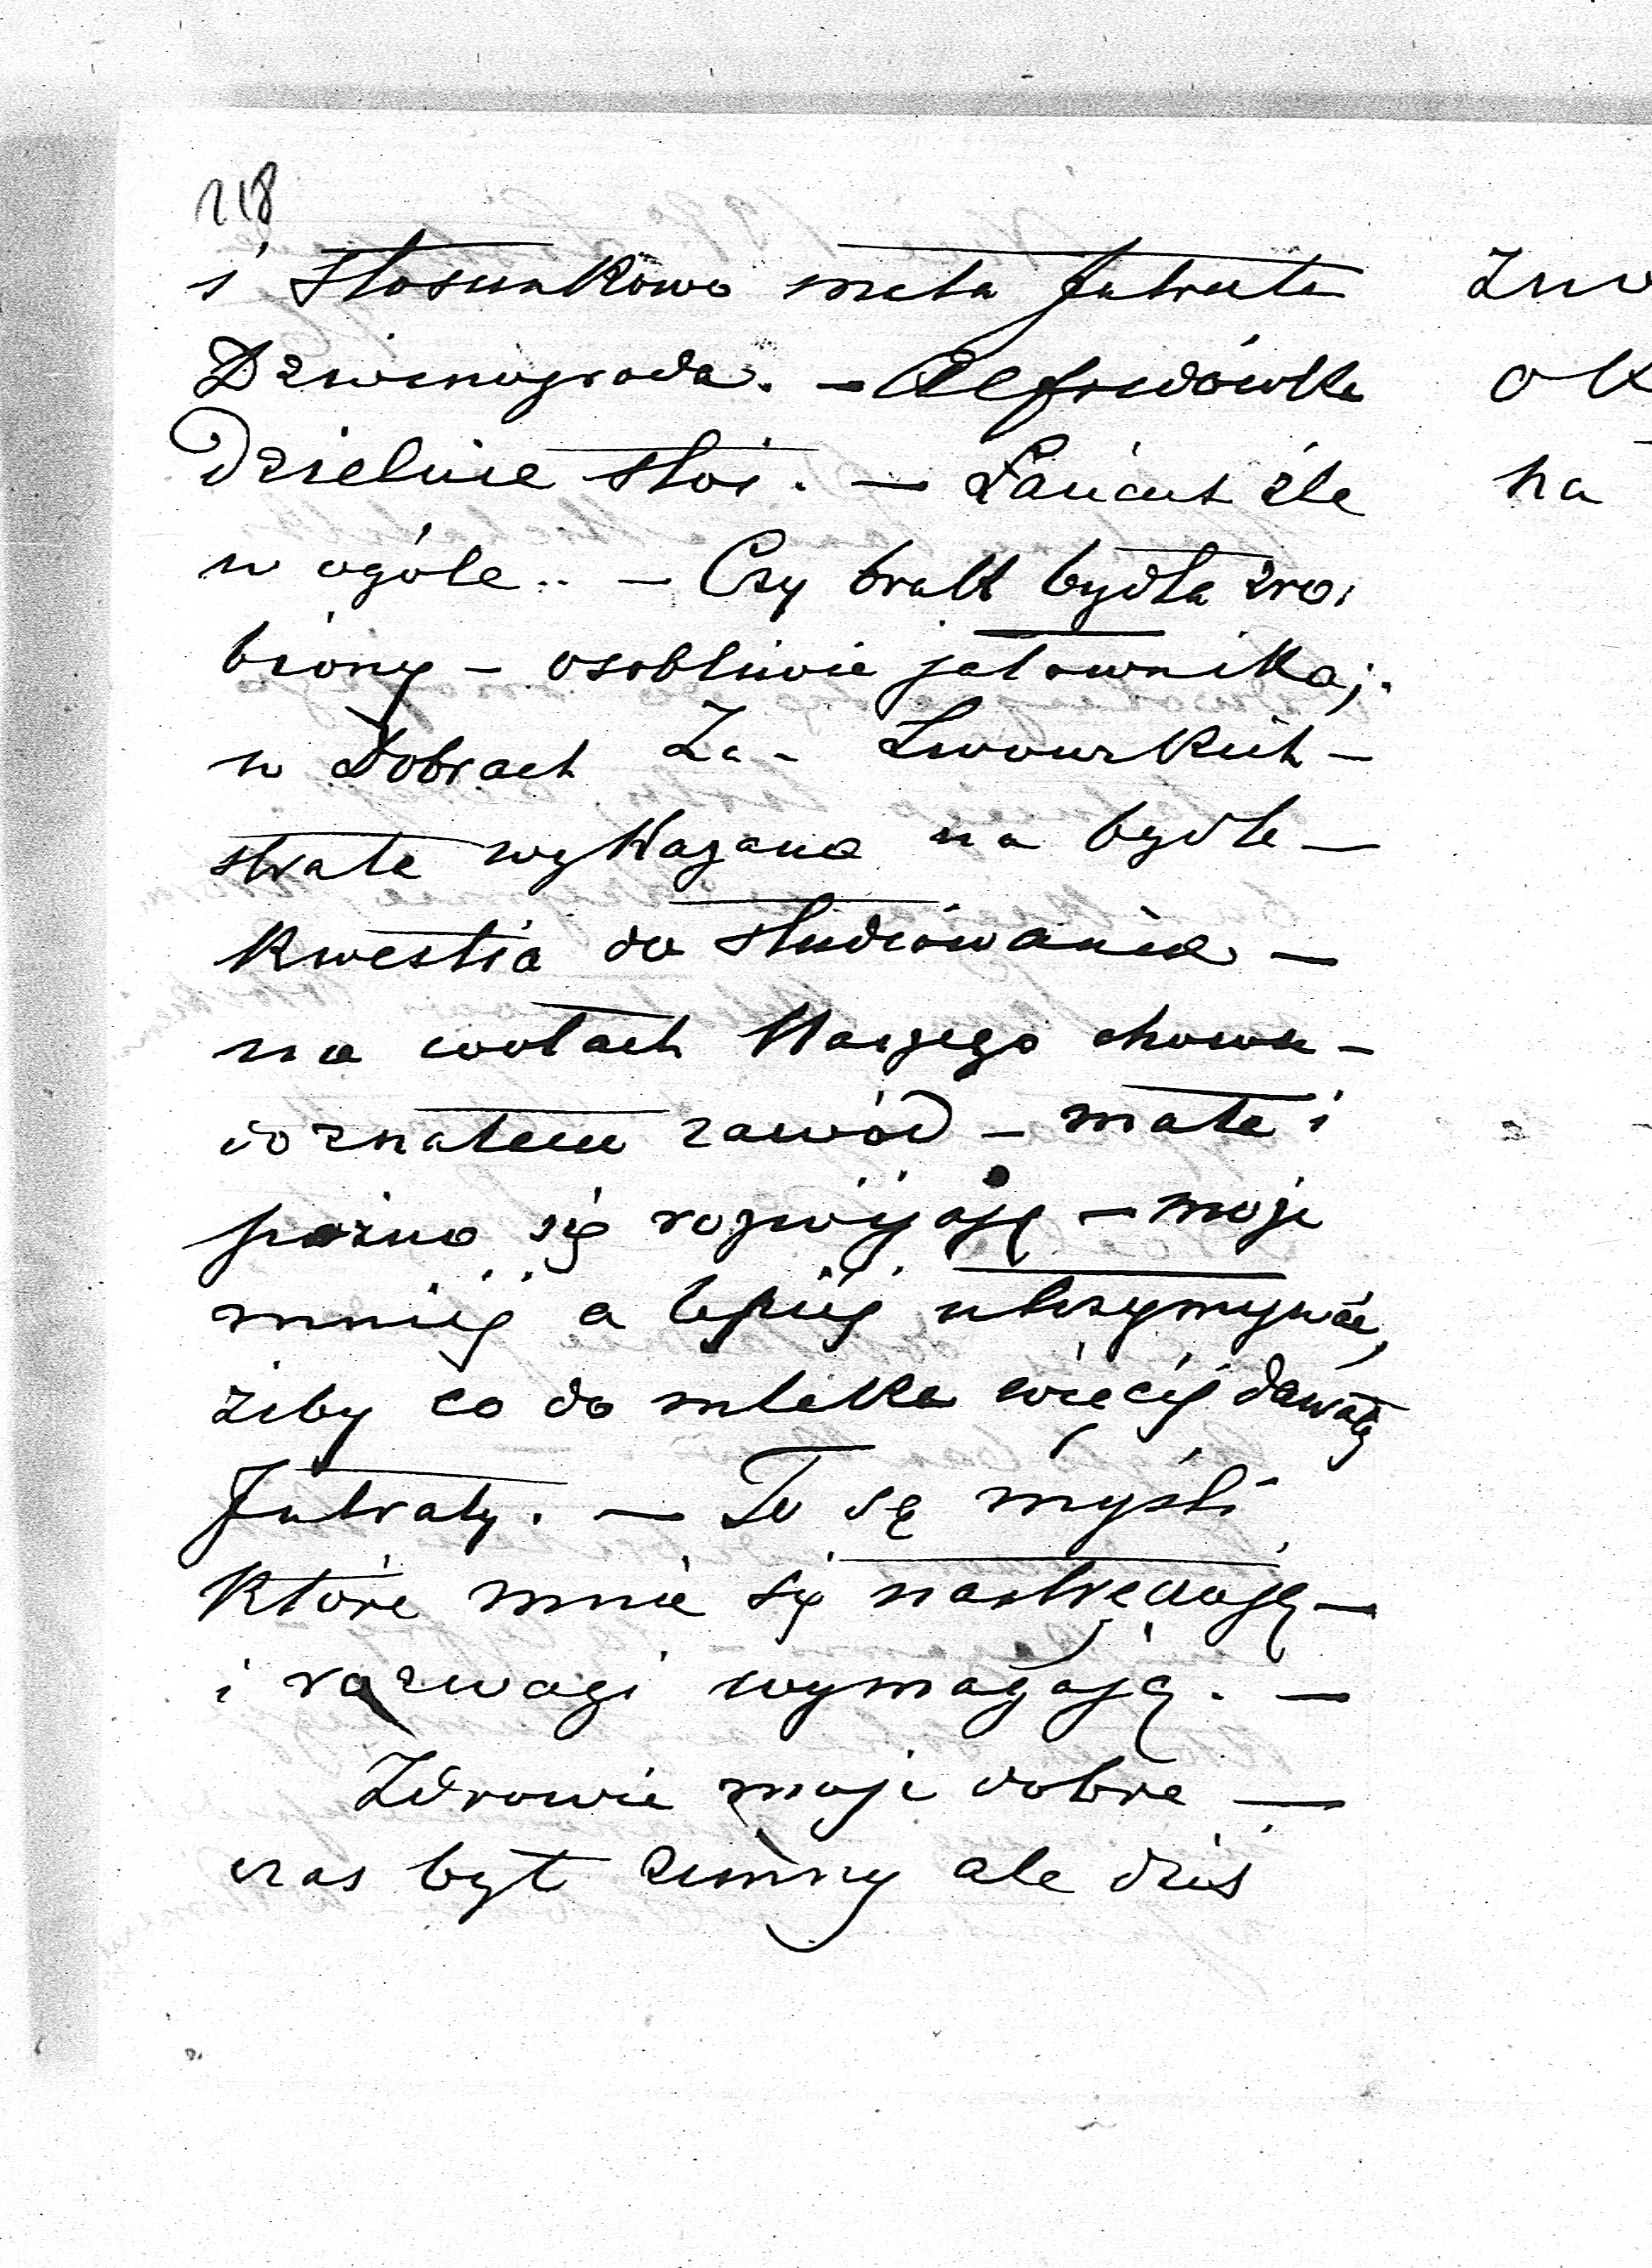 218
i stosunkowo mała Intrata
Dzwinogroda. — Alfredówka
Dzielnie stoi. — Łańcut źle
w ogóle.. — Czy brak bydła zro,
biony — osobliwie jałownika;.
w Dobrach Za - Lwowskich —
strata wykazana na bydle —
Kwestia do studiowania —
na wołach Naszego chowu —
doznałem zawód — małe i
poźno się rozwijają — moje
mniej a lepiej utrzymywać,
żeby co do mleka więcej dawały
Intraty. — To są myśli
Które mnie się nastręczają —
i rozwagi wymagają. —
Zdrowie moje dobre —
czas był zimny ale dziś